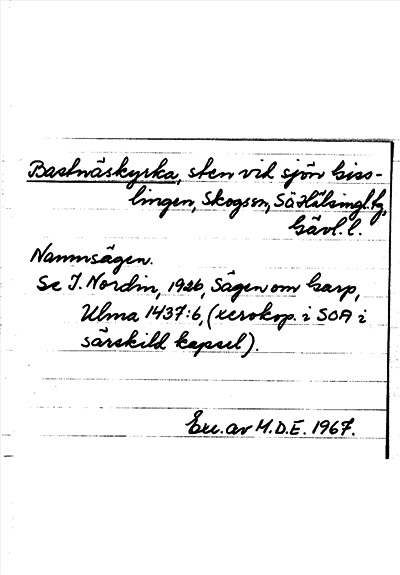 Bastnäskyrka, sten vid sjön Giss-
lingen, Skogson, SäHälsingl. tg,
Gävl. l.
Namnsägen.
Se J. Nordin, 1926, Sägen om Garp,
Ulma 1437:6, (xerokop. i SOA i
särskild kapsel).
Exc. av M.D.E. 1967.